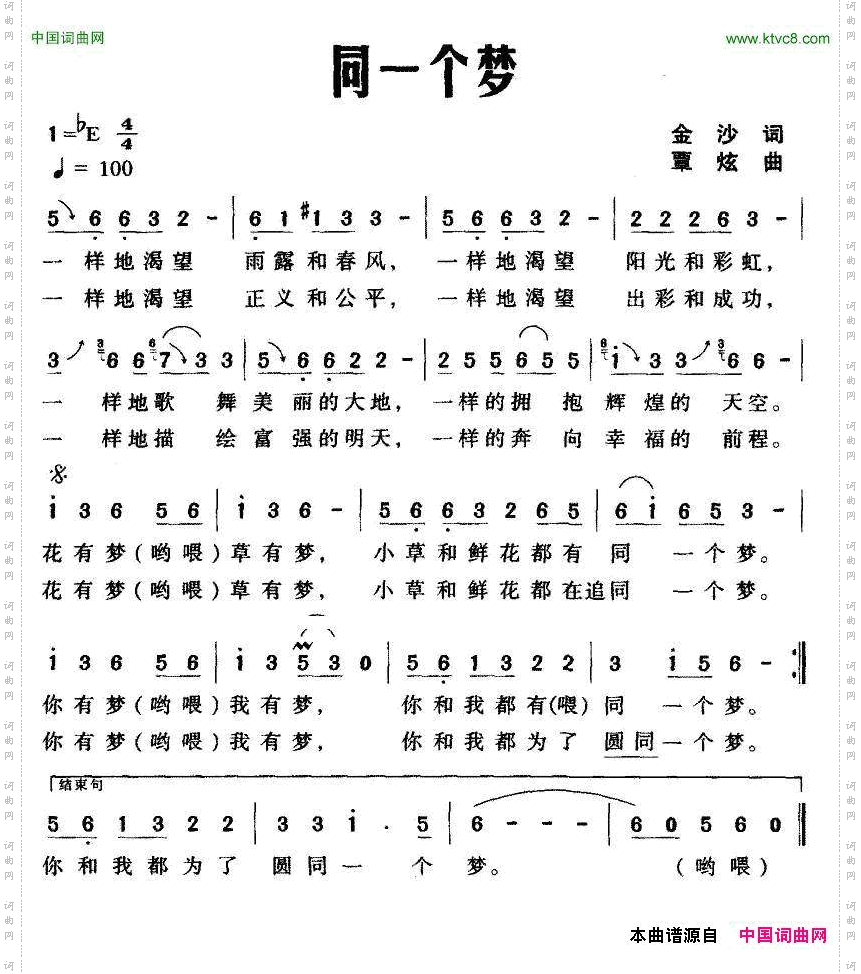 中国词曲网 www.ktvc8.com
同一个梦
1=♭E 4/4
♩= 100
金 沙 词
覃 炫 曲
5 6 6 3 2 - | 6 1 #1 3 3 3 - | 5 6 6 3 2 - | 2 2 2 6 3 - |
一 样 地 渴 望 雨 露 和 春 风, 一 样 地 渴 望 阳 光 和 彩 虹,
一 样 地 渴 望 正 义 和 公 平, 一 样 地 渴 望 出 彩 和 成 功,
3 3 6 6 6 7 3 3 | 5 6 6 2 2 2 - | 2 5 5 6 5 5 | 6 1 3 3 3 6 6 - |
一 样 地 歌 舞 美 丽 的 大 地, 一 样 的 拥 抱 辉 煌 的 天 空。
一 样 地 描 绘 富 强 的 明 天, 一 样 的 奔 向 幸 福 的 前 程。
1 3 6 5 6 | 1 3 6 - | 5 6 6 3 2 6 5 | 6 1 6 5 3 - |
花 有 梦 (哟 喂) 草 有 梦, 小 草 和 鲜 花 都 有 同 一 个 梦。
花 有 梦 (哟 喂) 草 有 梦, 小 草 和 鲜 花 都 在 追 同 一 个 梦。
1 3 6 5 6 | 1 3 5 3 0 | 5 6 1 3 2 2 | 3 1 5 6 - :|
你 有 梦 (哟 喂) 我 有 梦, 你 和 我 都 有 (喂) 同 一 个 梦。
你 有 梦 (哟 喂) 我 有 梦, 你 和 我 都 为 了 圆 同 一 个 梦。
结束句
5 6 1 3 2 2 | 3 3 1 . 5 | 6 - - - | 6 0 5 6 0 ‖
你 和 我 都 为 了 圆 同 一 个 梦。 (哟 喂)
本曲谱源自 中国词曲网